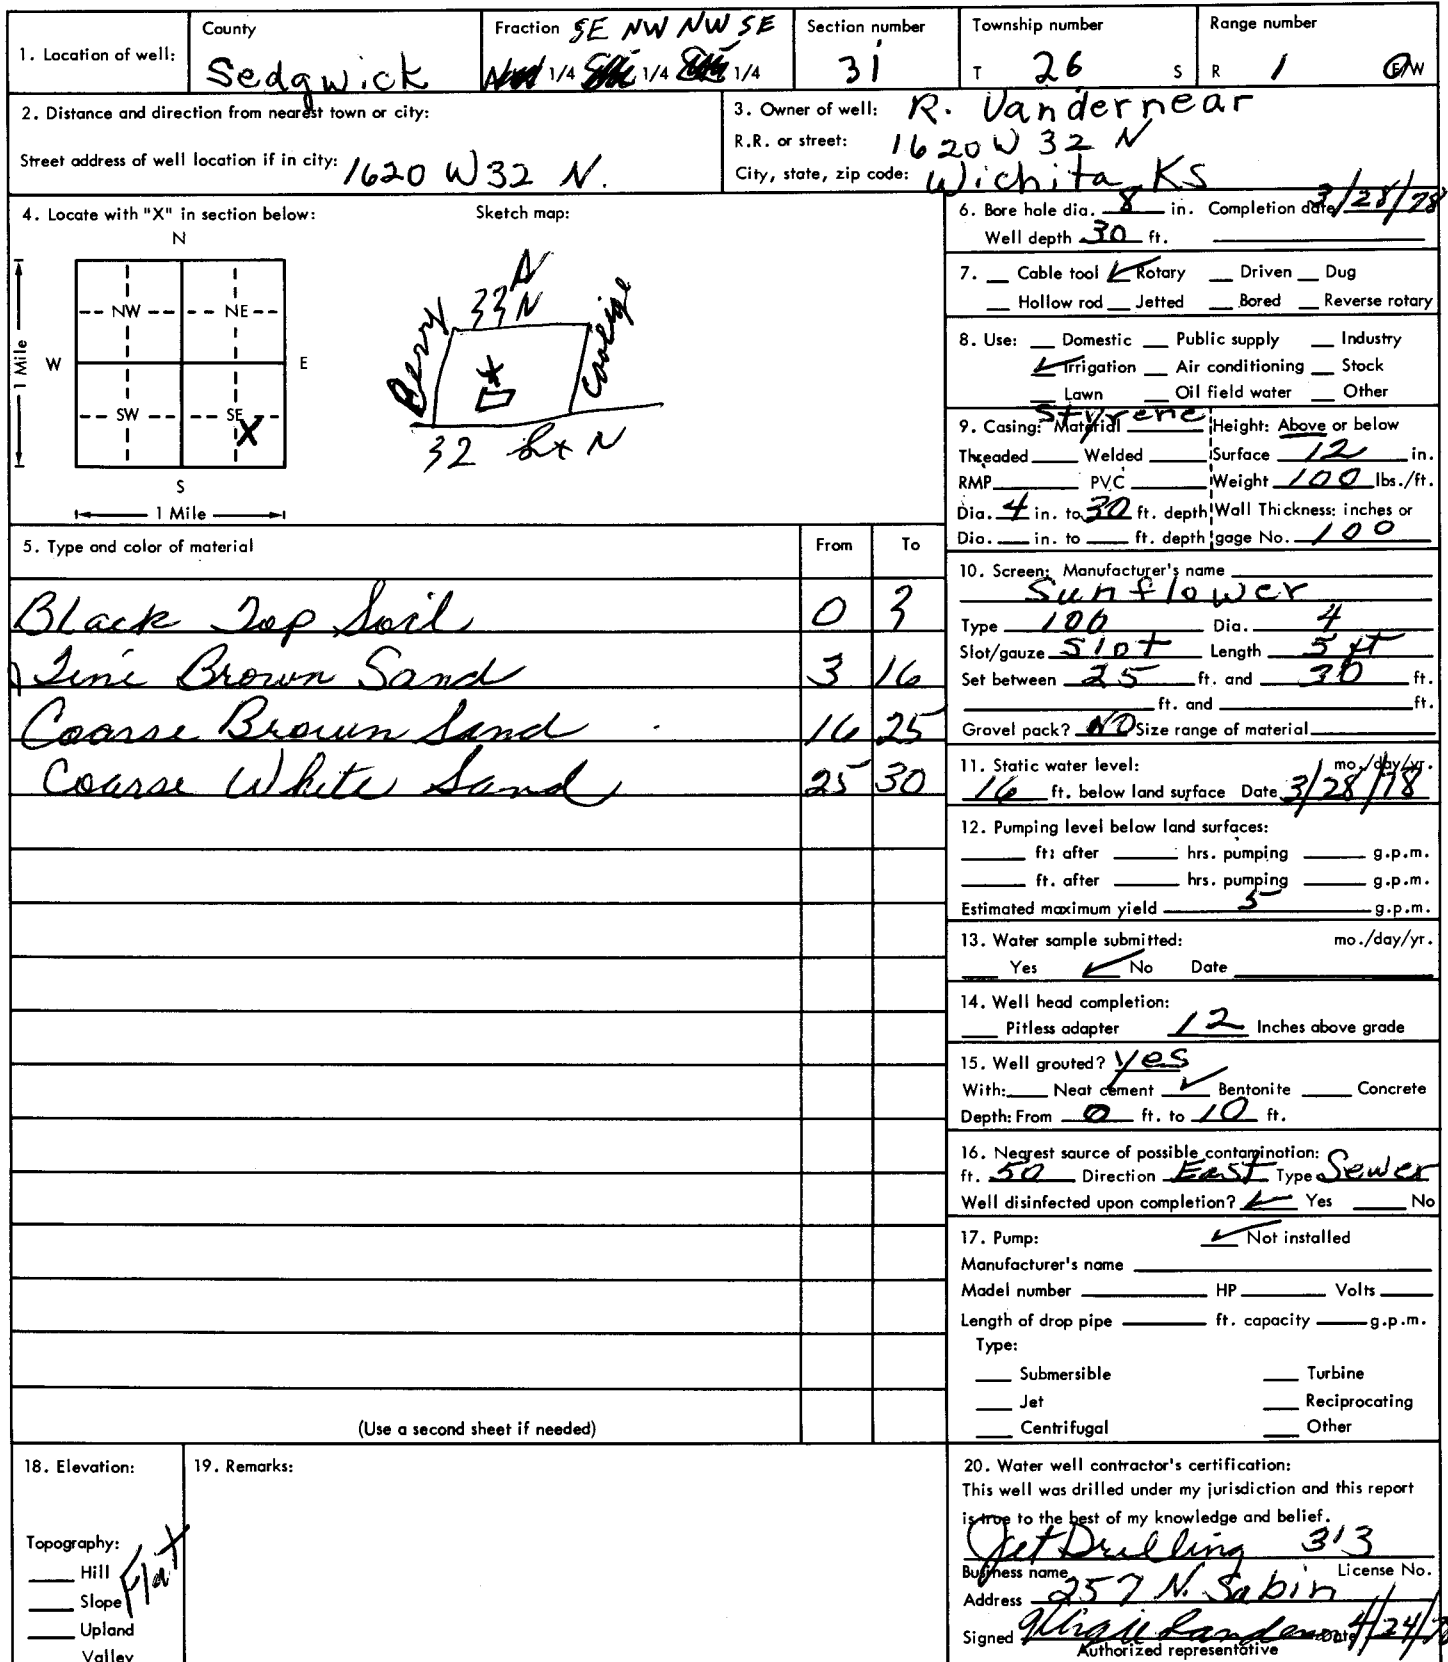 1. Location of well:
County
Sedgwick
Fraction SE NW NW SE
1/4 1/4 1/4
Section number
31
Township number
T 26 S
Range number
R 1 E/W
2. Distance and direction from nearest town or city:
Street address of well location if in city: 1620 W 32 N.
3. Owner of well: R. Vandernear
R.R. or street: 1620 W 32 N
City, state, zip code: Wichita, Ks
4. Locate with "X" in section below:
N
NW NE
W E
SW SE
X
S
1 Mile
1 Mile
Sketch map:
N
33 N
Berry
Coolige
32 St N
5. Type and color of material From To
Black Top Soil 0 3
Fine Brown Sand 3 16
Coarse Brown Sand 16 25
Coarse White Sand 25 30
(Use a second sheet if needed)
6. Bore hole dia. 8 in. Completion date 3/28/78
Well depth 30 ft.
7. Cable tool ✓ Rotary Driven Dug
Hollow rod Jetted Bored Reverse rotary
8. Use: Domestic Public supply Industry
✓ Irrigation Air conditioning Stock
Lawn Oil field water Other
9. Casing: Material Styrene Height: Above or below
Threaded Welded Surface 12 in.
RMP PVC Weight 100 lbs./ft.
Dia. 4 in. to 30 ft. depth Wall Thickness: inches or
Dia. in. to ft. depth gage No. 100
10. Screen: Manufacturer's name
Sunflower
Type 100 Dia. 4
Slot/gauze Slot Length 5 ft
Set between 25 ft. and 30 ft.
ft. and ft.
Gravel pack? NO Size range of material
11. Static water level: mo./day/yr.
16 ft. below land surface Date 3/28/78
12. Pumping level below land surfaces:
ft. after hrs. pumping g.p.m.
ft. after hrs. pumping g.p.m.
Estimated maximum yield 5 g.p.m.
13. Water sample submitted: mo./day/yr.
Yes ✓ No Date
14. Well head completion:
Pitless adapter 12 Inches above grade
15. Well grouted? yes
With: Neat cement ✓ Bentonite Concrete
Depth: From 0 ft. to 10 ft.
16. Nearest source of possible contamination:
ft. 50 Direction East Type Sewer
Well disinfected upon completion? ✓ Yes No
17. Pump: ✓ Not installed
Manufacturer's name
Model number HP Volts
Length of drop pipe ft. capacity g.p.m.
Type:
Submersible Turbine
Jet Reciprocating
Centrifugal Other
18. Elevation:
Topography:
Hill
Slope
Upland
Valley
Flat
19. Remarks:
20. Water well contractor's certification:
This well was drilled under my jurisdiction and this report
is true to the best of my knowledge and belief.
Jet Drilling 313
Business name License No.
Address 257 N. Sabin
Signed Date 4/24/78
Authorized representative